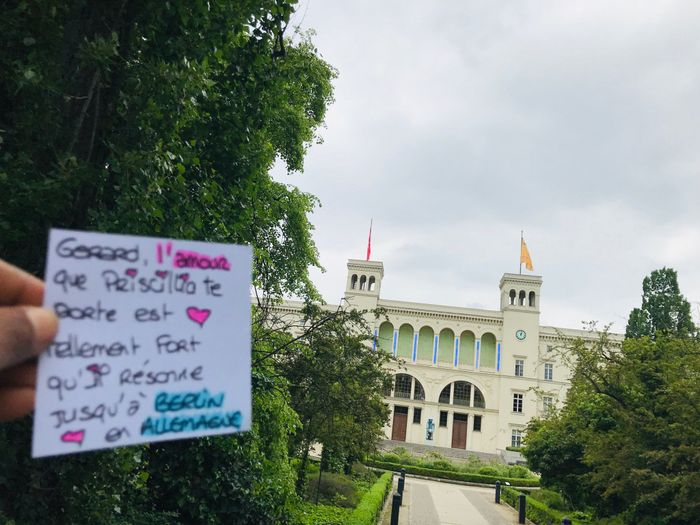 Gerard, l'amour
que Priscilia te
porte est
tellement Fort
qu'il Résonne
jusqu'à BERLIN
en ALLEMAGNE